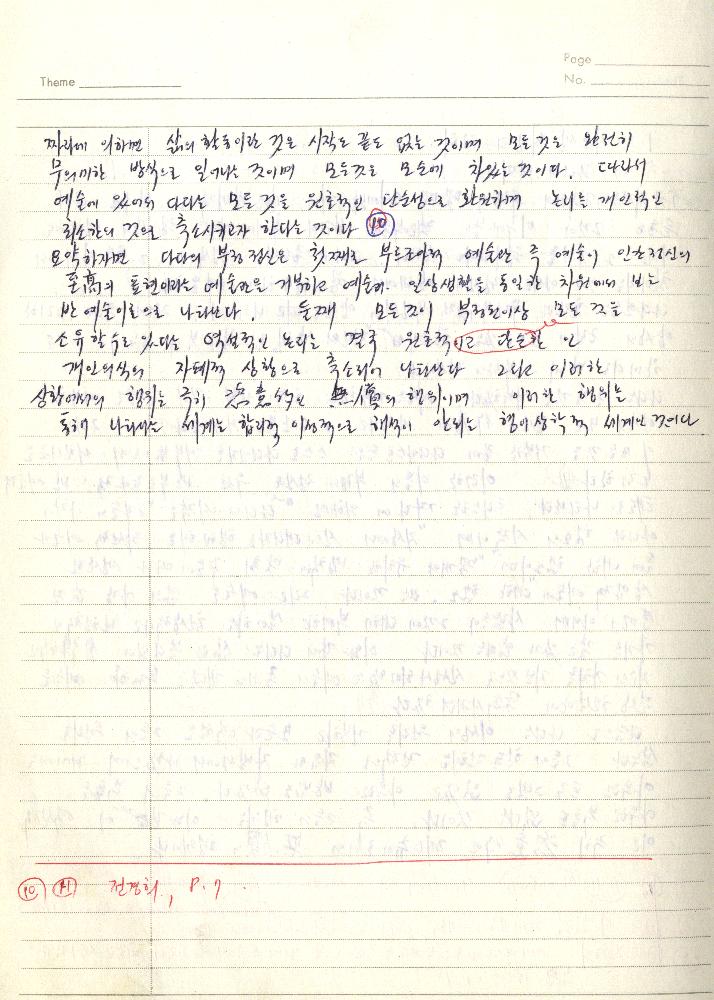 Page
Theme
No.
짜라에 의하면 삶의 활동이란 것은 시작도 끝도 없는 것이며 모든것은 완전히
무의미한 방식으로 일어나는 것이며 모든것은 모순에 차있는 것이다. 따라서
예술에 있어서 다다는 모든것을 원초적인 단순성으로 환원하며 논리를 개인적인
최소한의 것으로 축소시키고자 한다는 것이다 10
요약하자면 다다의 부정정신은 첫째로 부르조아적 예술관 즉 예술이 인간정신의
至高의 표현이라는 예술관을 거부하고 예술과 일상생활을 동일한 차원에서 보는
반예술이론으로 나타난다. 둘째 모든것이 부정된이상 모든 것을
소유할수도 있다는 역설적인 논리는 결국 원초적이고 단순한 인
개인의식의 자폐적 상황으로 축소되어 나타난다 그리고 이러한
상황에서의 행위는 극히 恣意的인 無償의 행위이며 이러한 행위를
통해 나타나는 세계는 합리적 이성적으로 해석이 안되는 형이상학적 세계인 것이다.
10. 전경희, P. 7.